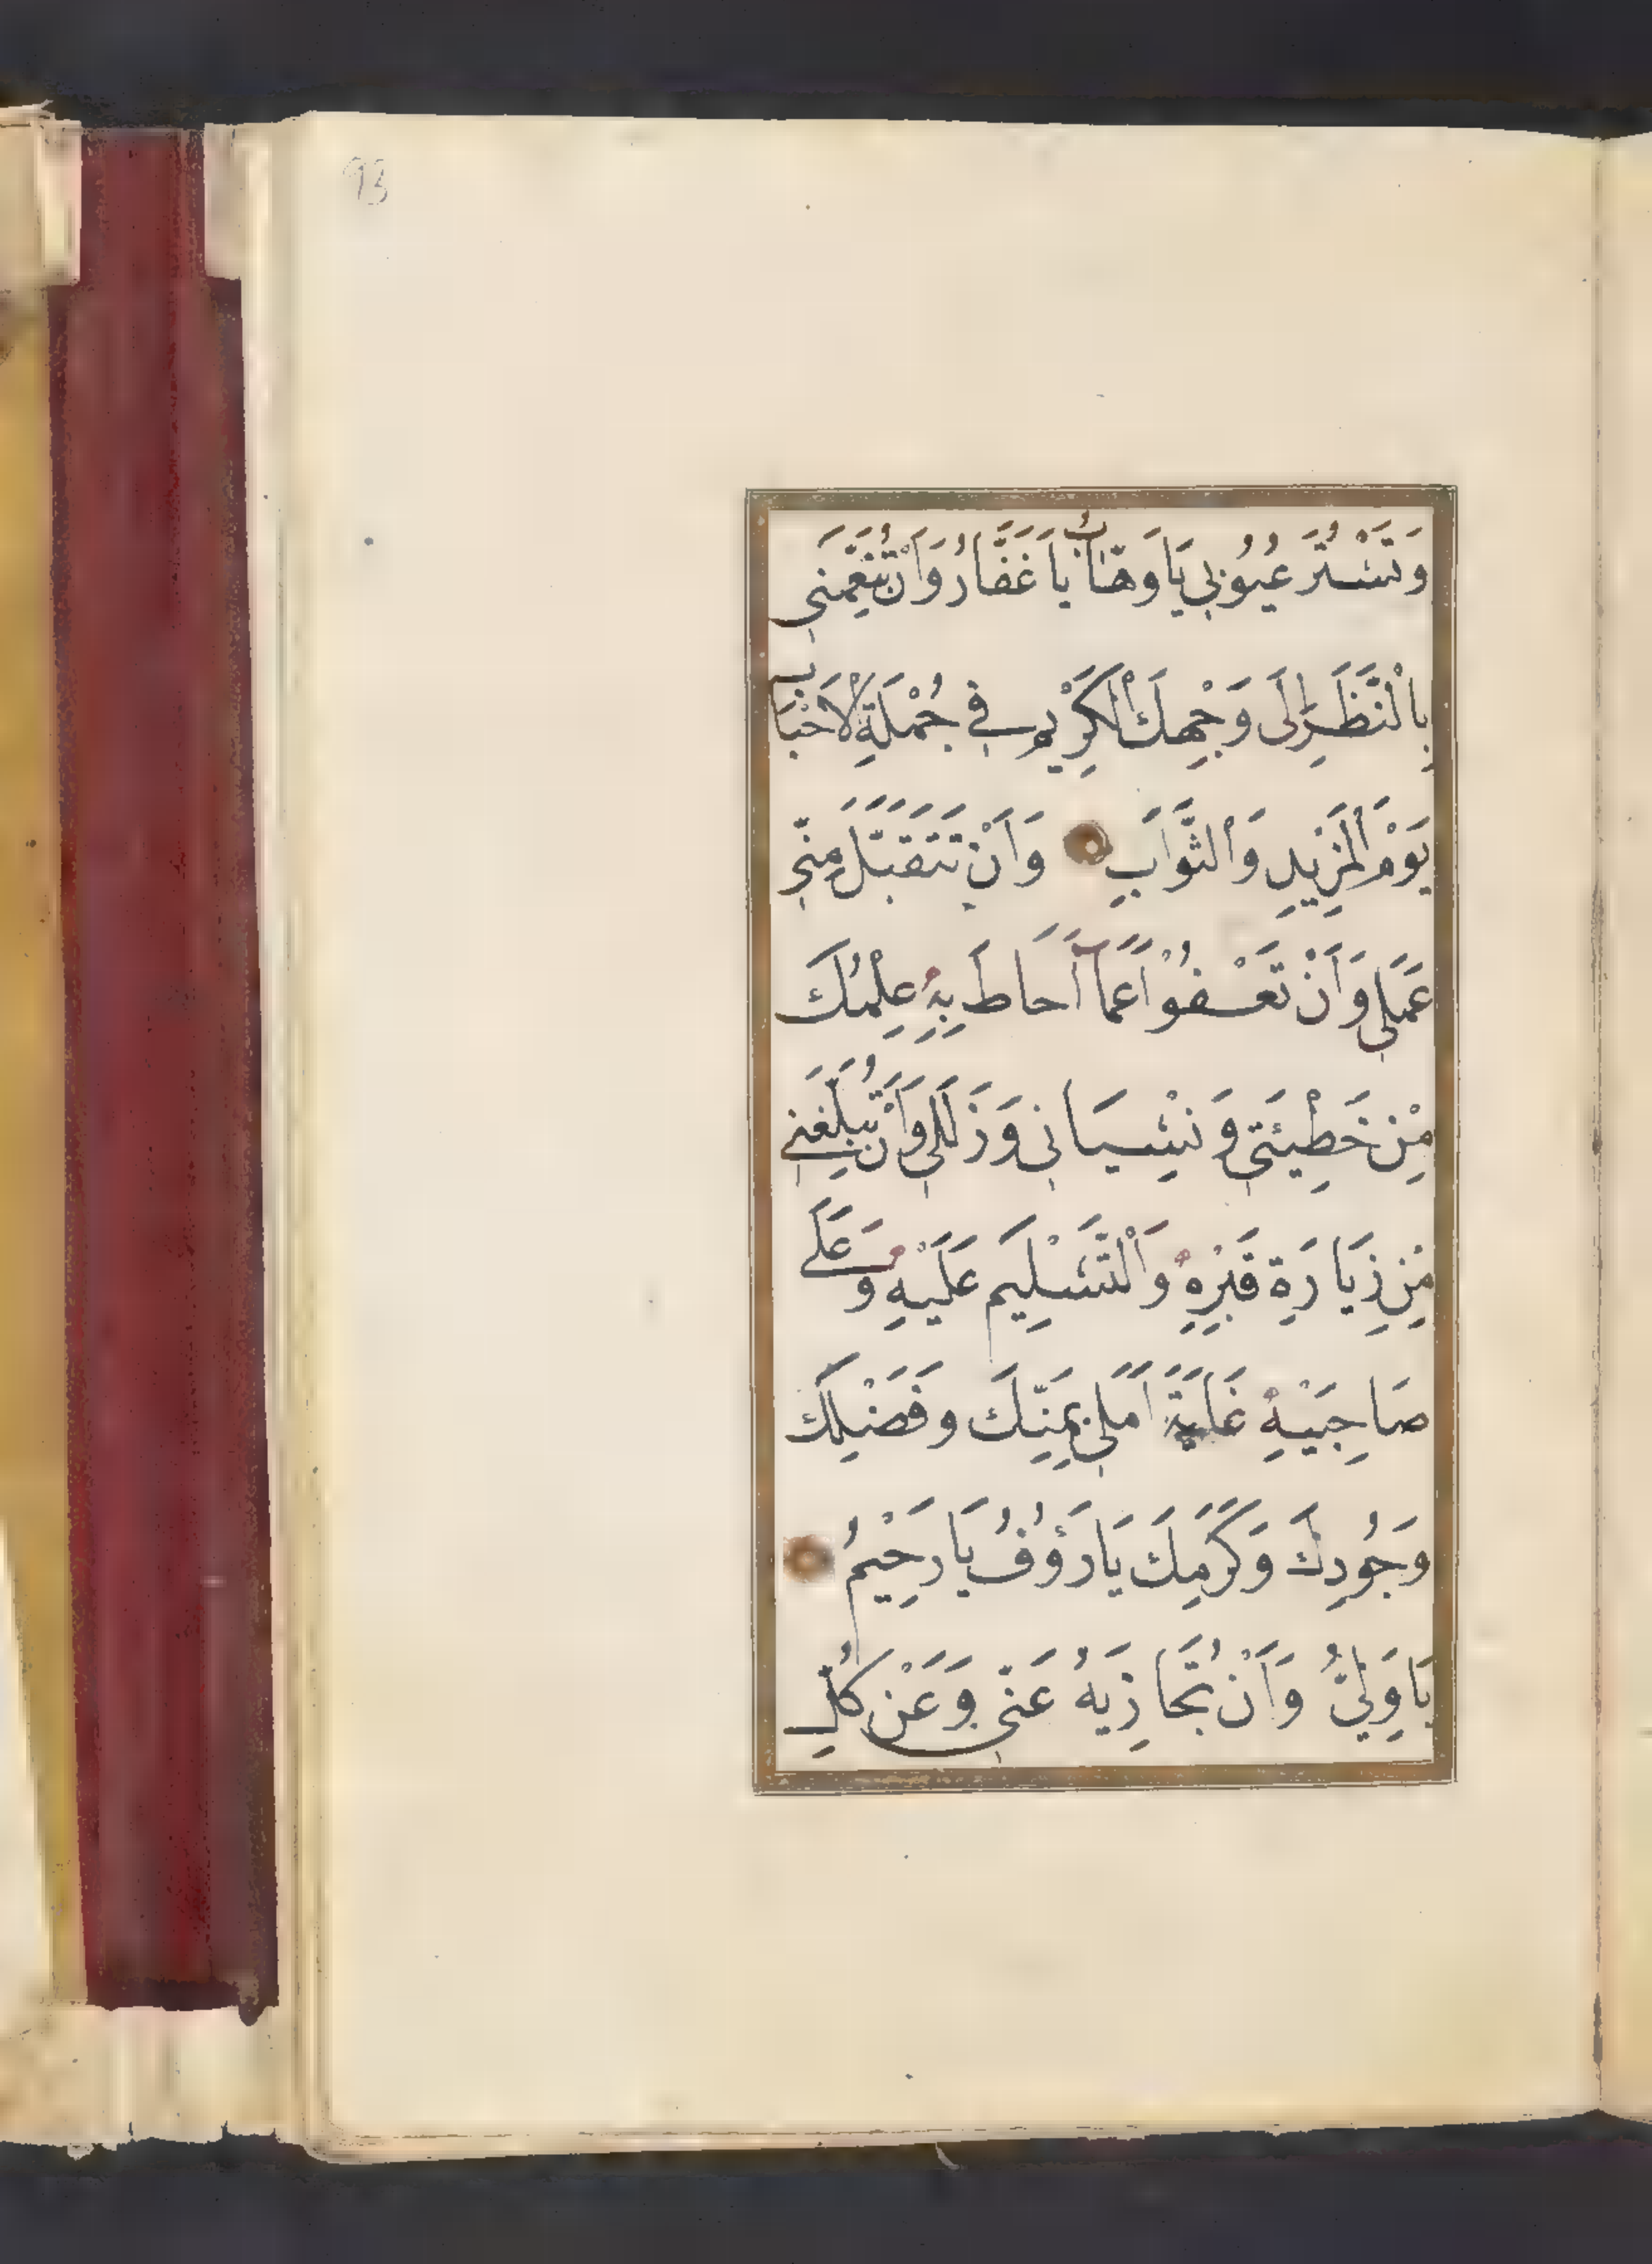 93
وَتَسْتُرَ عُيُوُبِي يَا وَهَّابُ يَا غَفَّارُ وَاَنْ تُنَعِّمَنِي
بِالْنَّظَرِ اِلَى وَجْهِكَ الْكَرِيْمِ فِي جُمْلَةِ الْاَحْبَابِ
يَوْمَ الْمَزِيدِ وَالثَّوَابِ وَاَنْ تَتَقَبَّلَ مِنِّي
عَمَلِي وَاَنْ تَعْفُوْا عَمَّا اَحَاطَ بِهِ عِلْمُكَ
مِنْ خَطِيْئَتِي وَنِسْيَانِي وَزَلَلِي وَاَنْ تُبَلِّغَنِي
مِنْ زِيَارَةِ قَبْرِهِ وَالْتَّسْلِيَمِ عَلَيْهِ وَعَلَى
صَاحِبَيْهِ غَايَةَ اَمَلِي بِمَنِّكَ وَفَضْلِكَ
وَجُودِكَ وَكَرَمِكَ يَا رَؤُفُ يَا رَحْيِمُ
يَا وَلِيُّ وَاَنْ تُجَازِيَهُ عَنِّي وَعَنْ كُلِّ